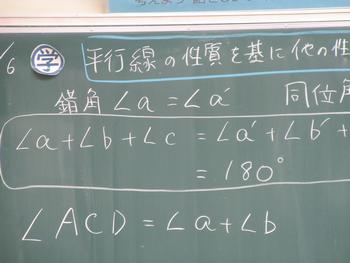 /6 学 平行線の性質を基に他の性
錯角 ∠a = ∠a′ 同位角
∠a + ∠b + ∠c = ∠a′ + ∠b′ +
= 180°
∠ACD = ∠a + ∠b